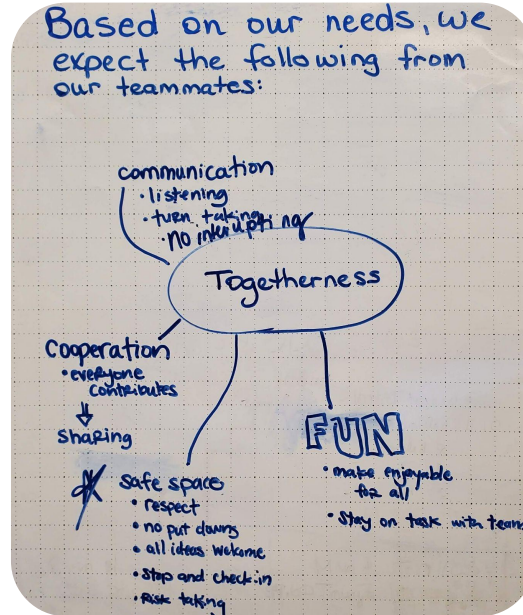 Based on our needs, we
expect the following from
our teammates:
communication
• listening
• turn taking
• no interrupting
Togetherness
Cooperation
• everyone
contributes
sharing
safe space
• respect
• no put downs
• all ideas welcome
• Stop and check-in
• Risk taking
FUN
• make enjoyable
for all
• Stay on task with team